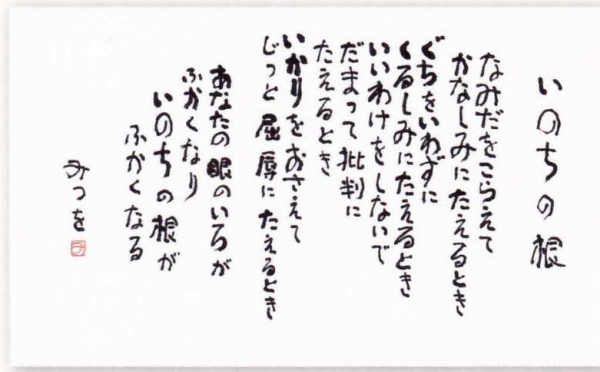 いのちの根
なみだをこらえて
かなしみにたえるとき
ぐちをいわずに
くるしみにたえるとき
いいわけをしないで
だまって批判に
たえるとき
いかりをおさえて
じっと屈辱にたえるとき
あなたの眼のいろが
ふかくなり
いのちの根が
ふかくなる
みつを